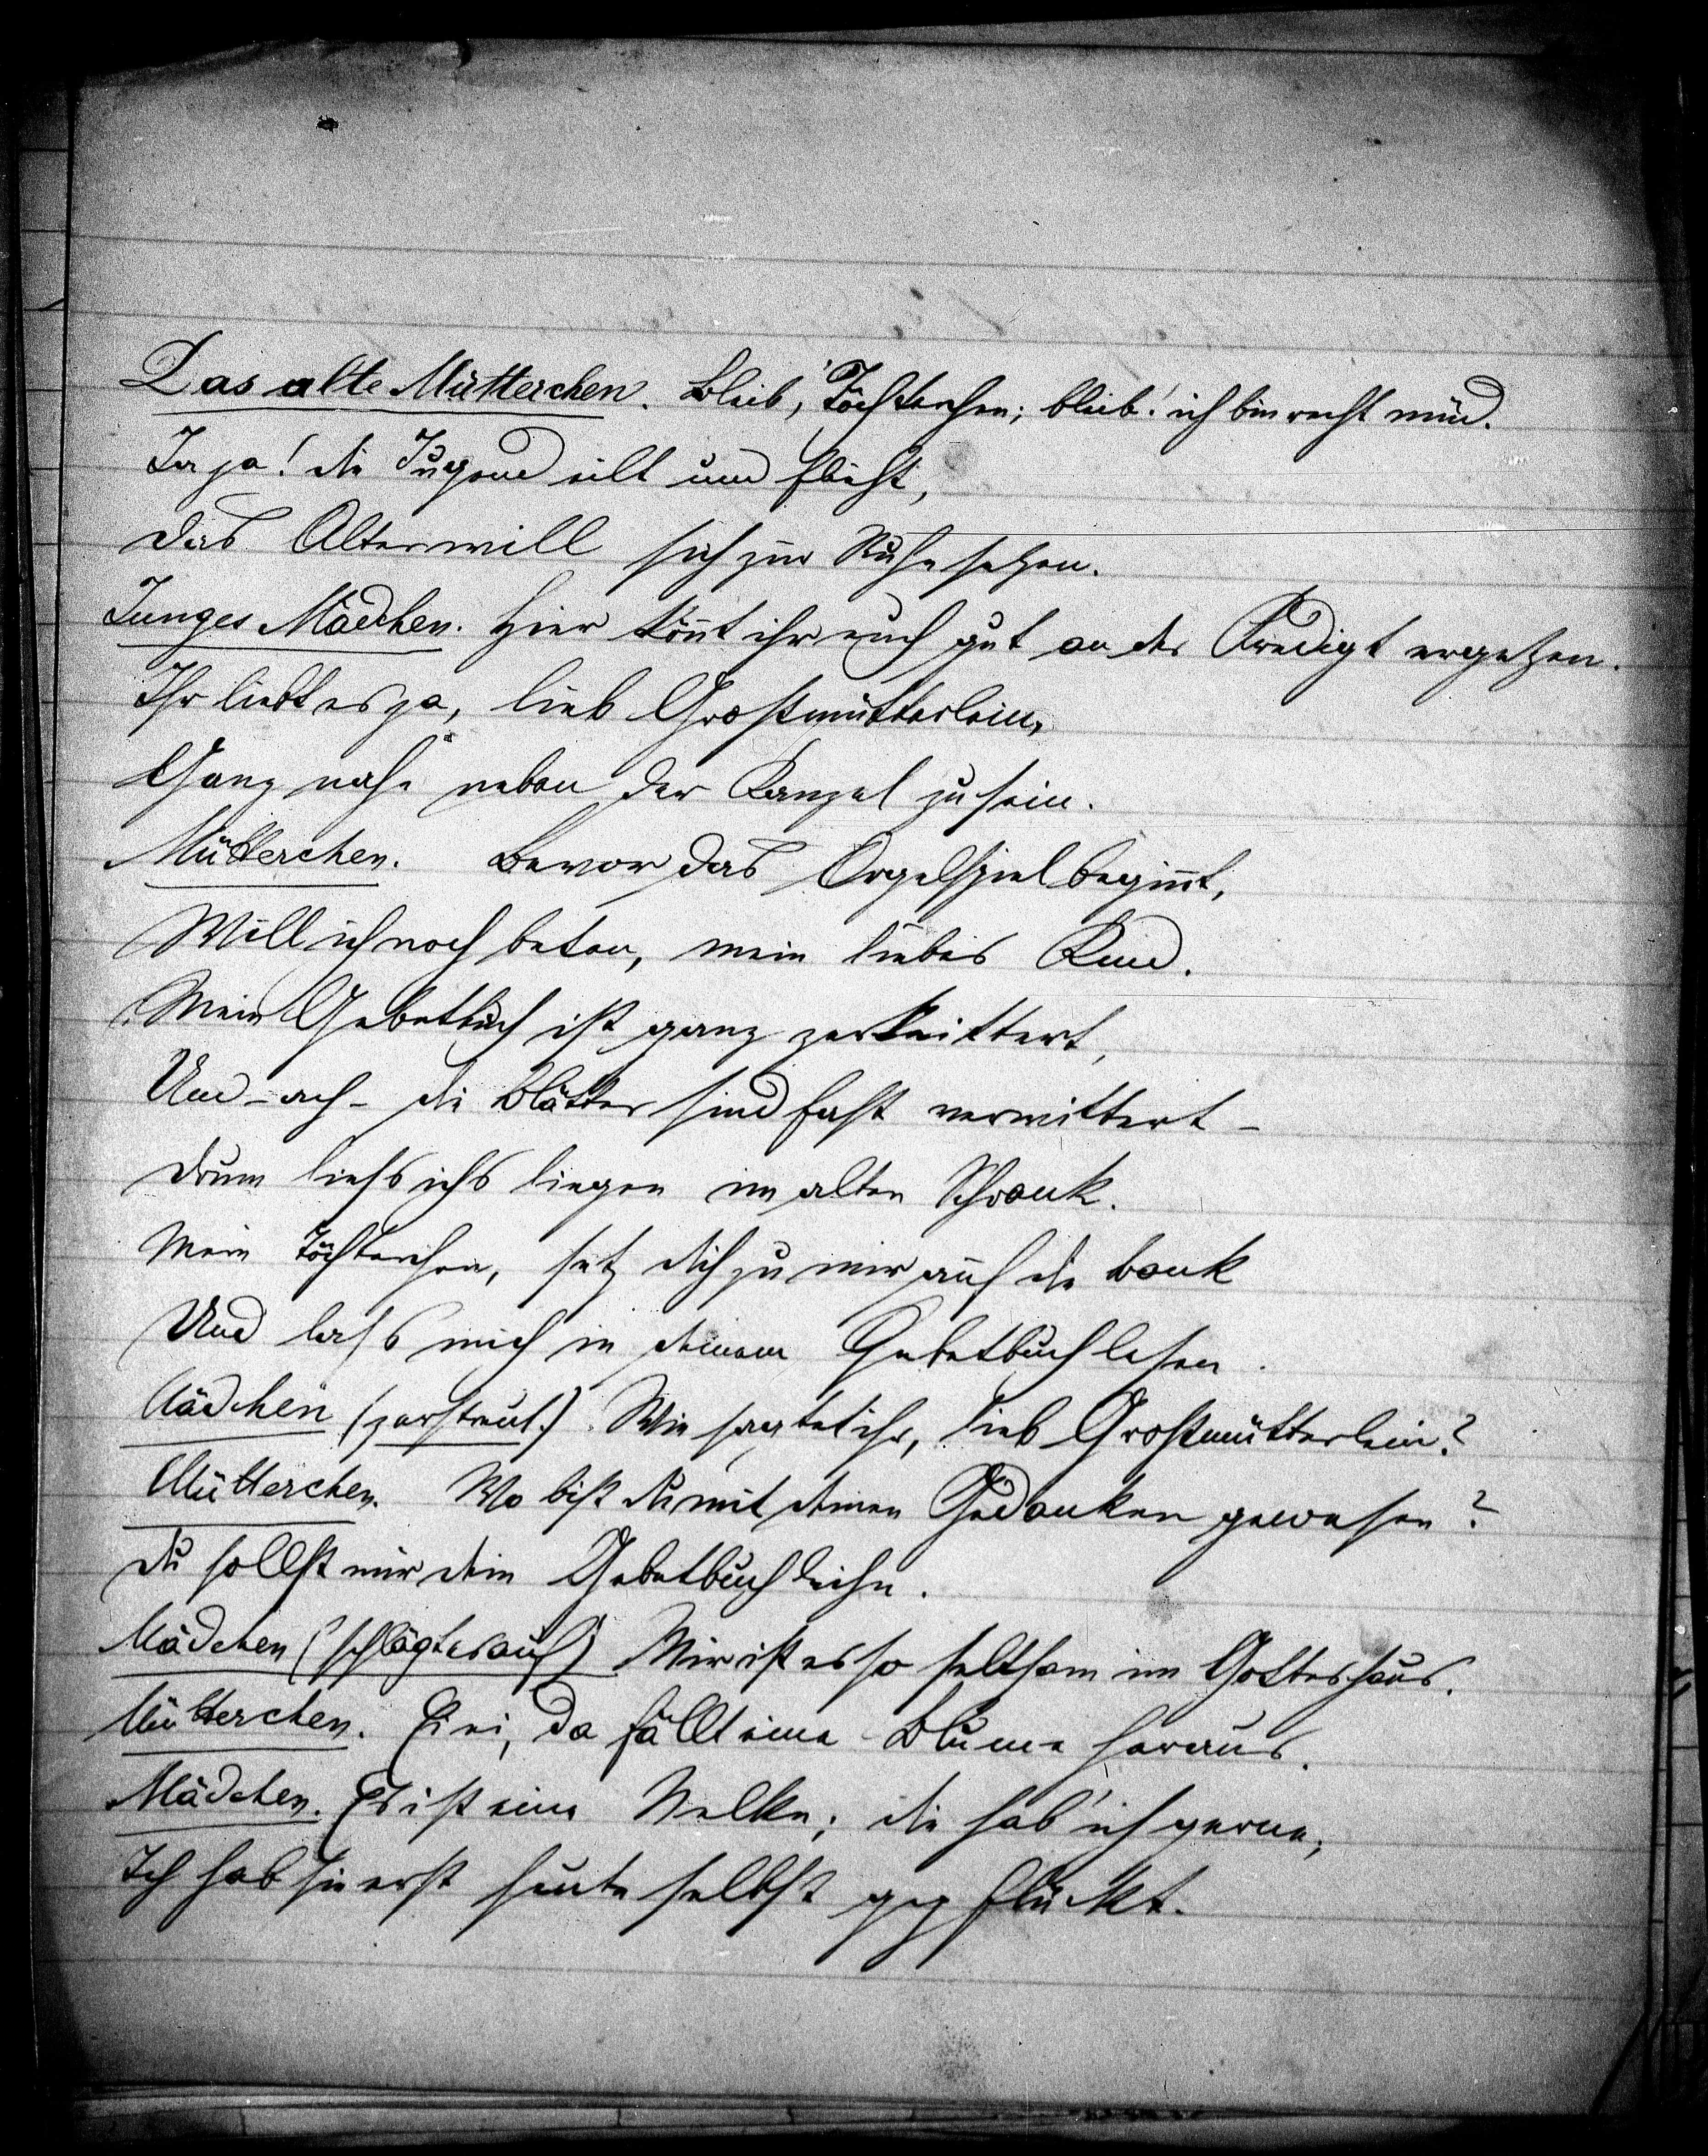 Das alte Mütterchen. Bleib, Töchterchen; bleib! ich bin recht müd.
Ja ja! die Jugend eilt und flieht,
Das Alter will sich zur Ruhe setzen.
Junges Mädchen. Hier könnt ihr euch gut an der Predigt ergetzen.
Ihr liebt es ja, lieb Großmütterlein,
Ganz nahe neben der Kanzel zu sein.
Mütterchen. Bevor das Orgelspiel beginnt,
Will ich noch beten, mein liebes Kind.
Mein Gebetbuch ist ganz zerknittert,
Und - ach - die Blätter sind fast verwittert -
Drum ließ ichs liegen im alten Schrank.
Mein Töchterchen, setz dich zu mir auf die Bank
Und laß mich in deinem Gebetbuch lesen.
Mädchen (zerstreut.) Wie sagtet ihr, lieb Großmütterlein?
Mütterchen. Wo bist du mit deinen Gedanken gewesen?
Du sollst mir dein Gebetbuch leihn.
Mädchen (schlägt es auf) Mir ist es so seltsam im Gotteshaus.
Mütterchen. Eiei, da fällt eine Blume heraus.
Mädchen. Es ist eine Nelke; die hab' ich gerne;
Ich hab sie erst heute selbst gepflückt.